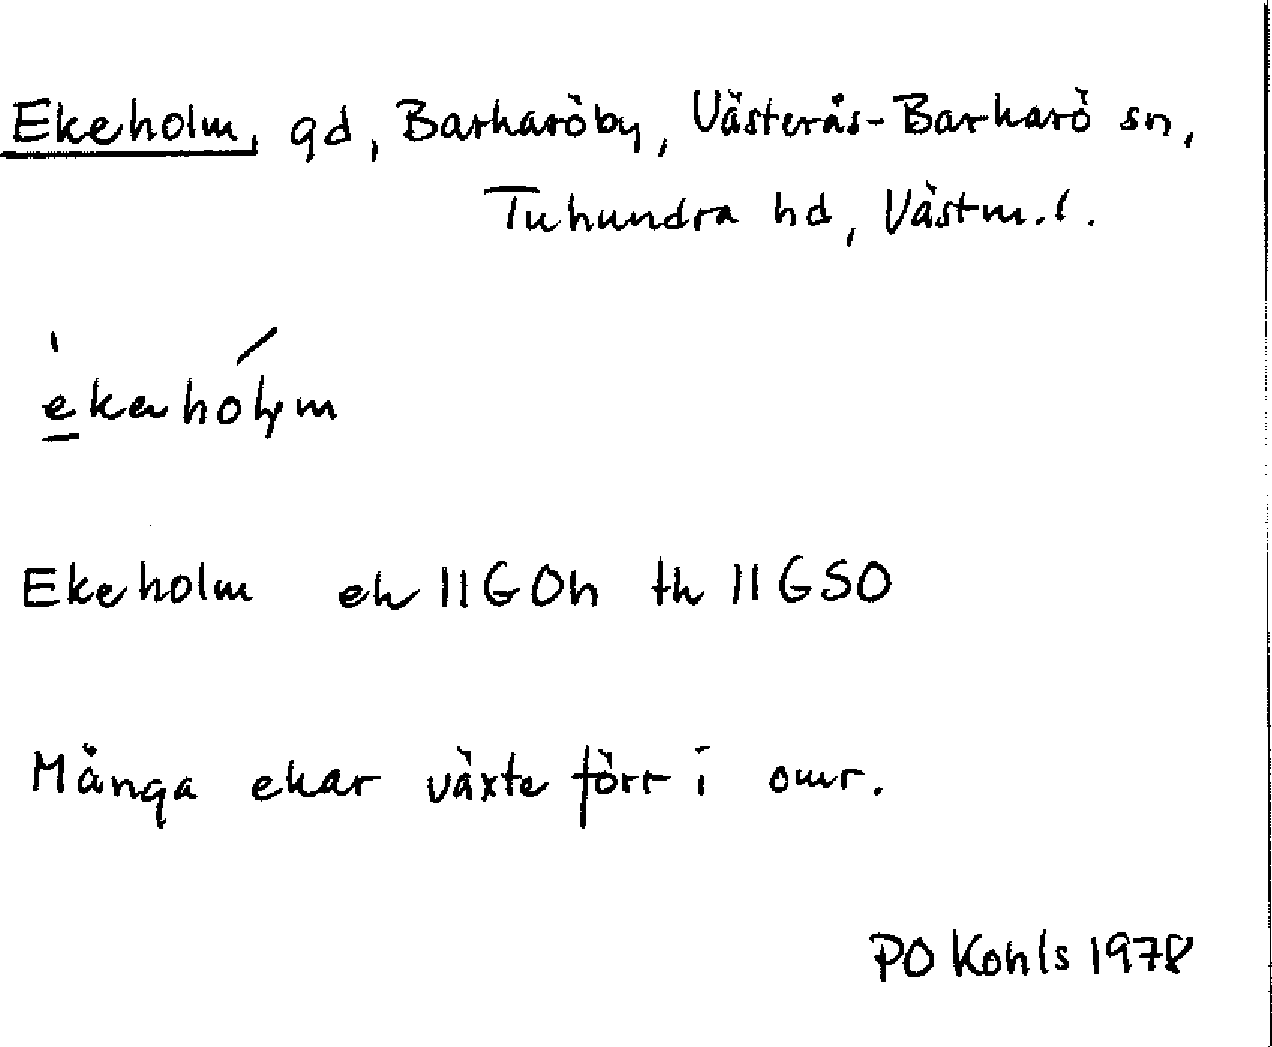 Ekeholm, gd, Barkaröby, Västerås-Barkarö sn,
Tuhundra hd, Västm. l.
ekerhólym
Ekeholm ek 11G0h tk 11GSO
Många ekar växte förr i omr.
PO Kohls 1978